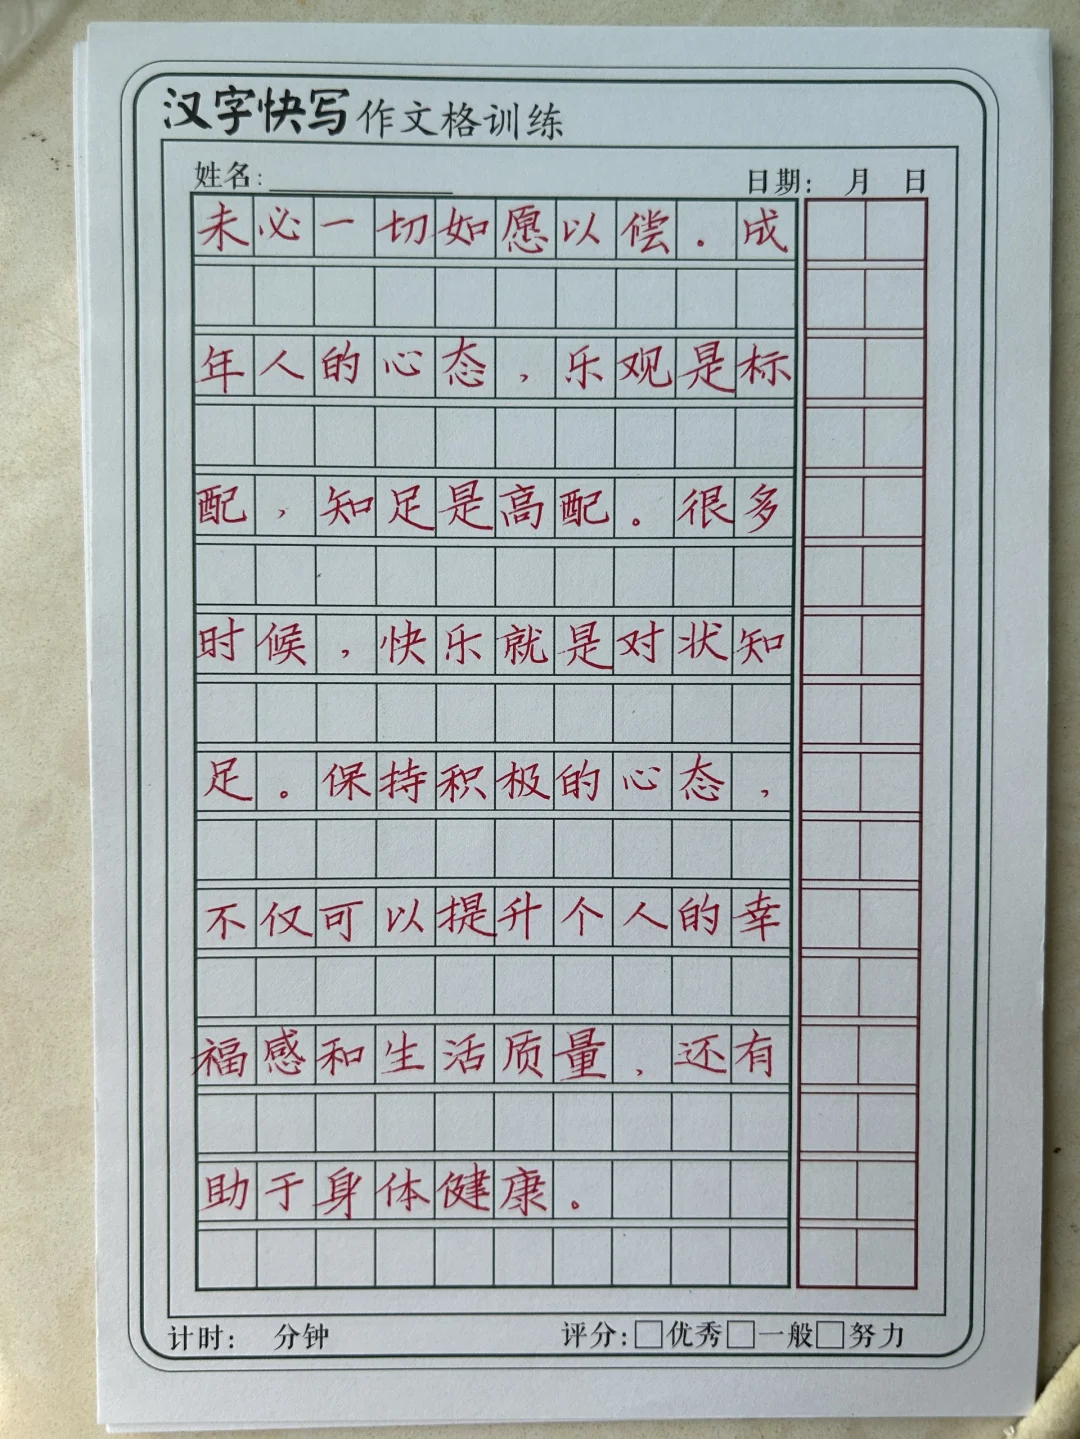 汉字快写作文格训练
姓名: 日期: 月 日
未必一切如愿以偿。成
年人的心态,乐观是标
配,知足是高配。很多
时候,快乐就是对状知
足。保持积极的心态,
不仅可以提升个人的幸
福感和生活质量,还有
助于身体健康。
计时: 分钟 评分:□优秀□一般□努力